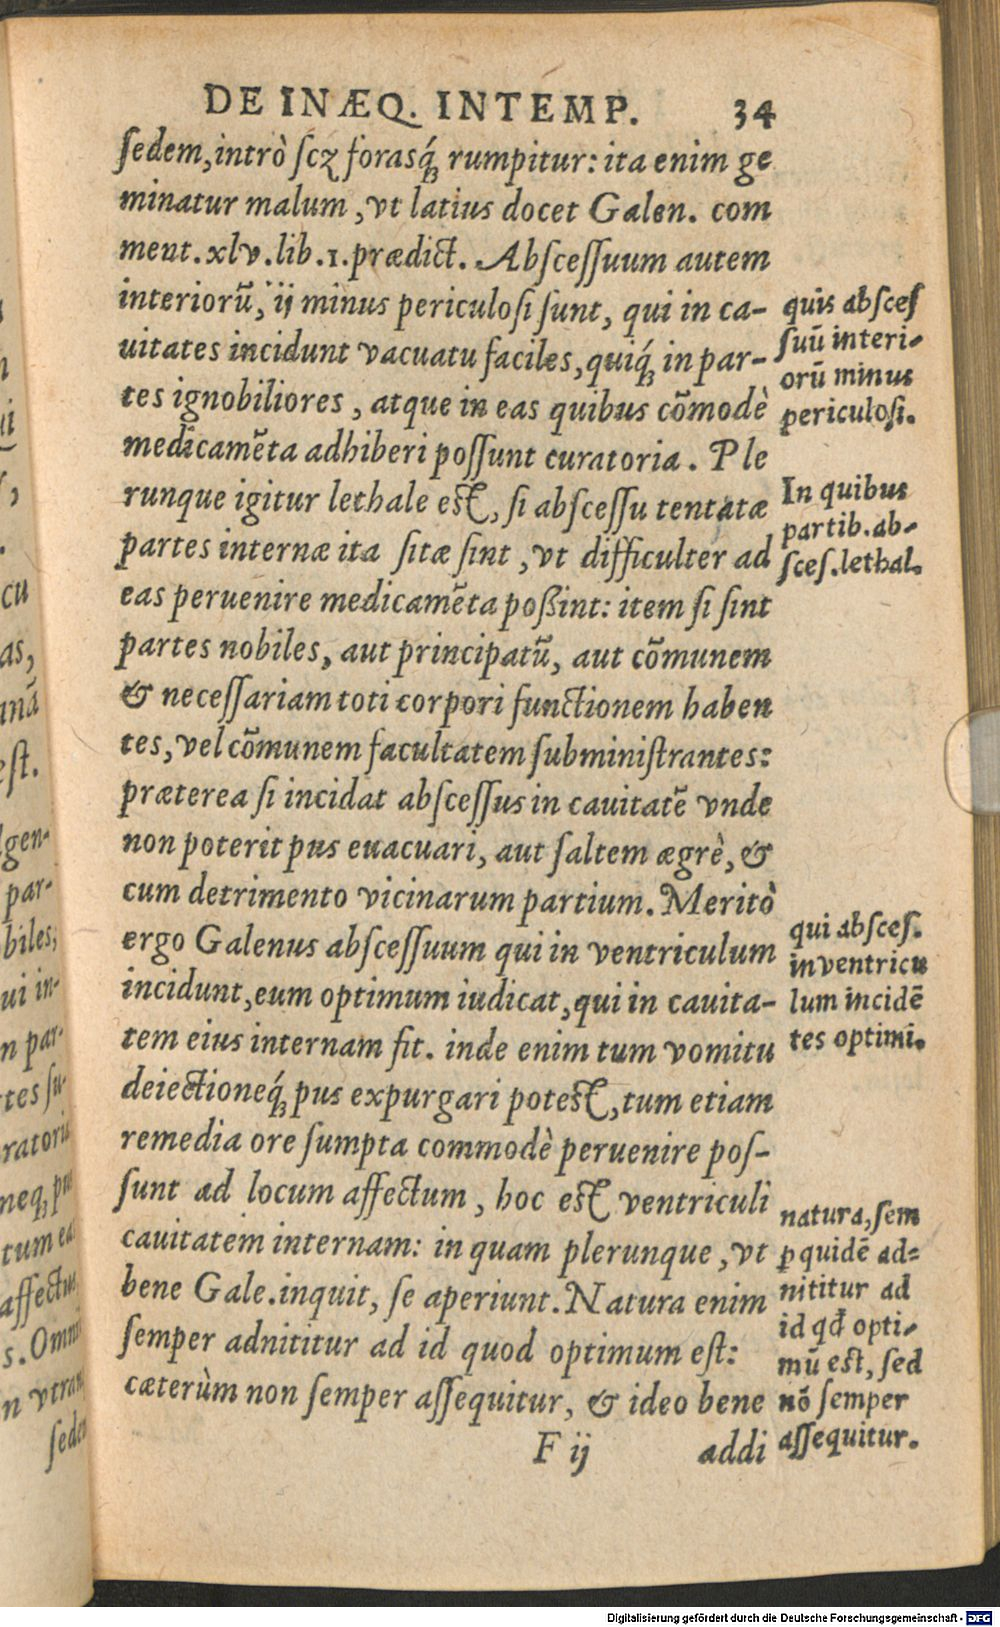 DE INÆQ. INTEMP. 34
ſedem,intrò ſcꝫ foraſq́ꝫ rumpitur: ita enim ge
minatur malum, vt latius docet Galen. com
ment.xlv.lib.1.prædict. Abſceſſuum autem
interiorũ, ij minus periculoſi ſunt, qui in ca-
uitates incidunt vacuatu faciles, quiq́ꝫ in par-
tes ignobiliores, atque in eas quibus cõmodè
medicamẽta adhiberi poſſunt curatoria. Ple
runque igitur lethale eſt, ſi abſceſſu tentatæ
partes internæ ita ſitæ ſint, vt difficulter ad
eas peruenire medicamẽta poßint: item ſi ſint
partes nobiles, aut principatũ, aut cõmunem
& neceſſariam toti corpori functionem haben
tes, vel cõmunem facultatem ſubminiſtrantes:
præterea ſi incidat abſceſſus in cauitatẽ vnde
non poterit pus euacuari, aut ſaltem ægrè, &
cum detrimento vicinarum partium. Meritò
ergo Galenus abſceſſuum qui in ventriculum
incidunt, eum optimum iudicat, qui in cauita-
tem eius internam fit. inde enim tum vomitu
deiectioneq́ꝫ pus expurgari poteſt, tum etiam
remedia ore ſumpta commodè peruenire poſ-
ſunt ad locum affectum, hoc eſt ventriculi
cauitatem internam: in quam plerunque, vt
bene Gale.inquit, ſe aperiunt. Natura enim
ſemper adnititur ad id quod optimum eſt:
cæterùm non ſemper aſſequitur, & ideo bene
F ij addi
quis abſceſ
ſuũ interi-
orũ minus
periculoſi.
In quibus
partib.ab-
ſceſ.lethal.
qui abſceſ.
in ventricu
lum incidẽ
tes optimi.
natura, ſem
p quidẽ ad-
nititur ad
id qđ opti-
mũ eſt, ſed
nõ ſemper
aſſequitur.
i
cu
as,
unã
eſt.
lgen-
par-
biles,
ui in-
n par-
tes ſu-
ratoria
neq,
tum ea
affectus
s. Omni
n vtran
ſedem
Digitalisierung gefördert durch die Deutsche Forschungsgemeinschaft - DFG